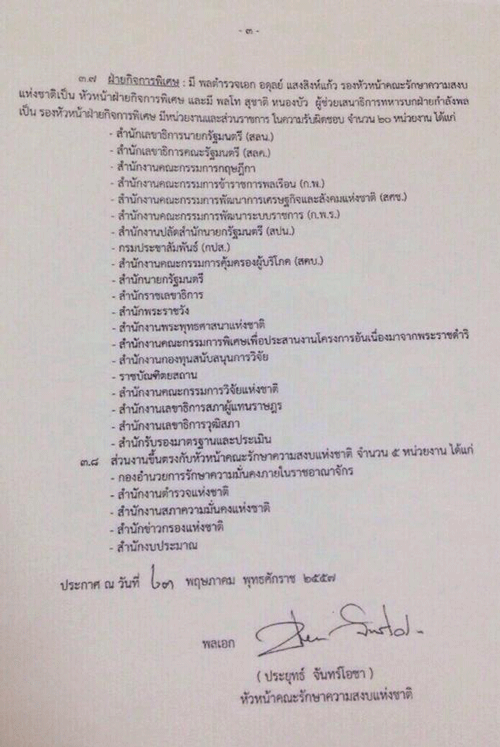 - ๓ -
๓.๗ ฝ่ายกิจการพิเศษ : มี พลตำรวจเอก อดุลย์ แสงสิงห์แก้ว รองหัวหน้าคณะรักษาความสงบ
แห่งชาติเป็น หัวหน้าฝ่ายกิจการพิเศษ และมี พลโท สุชาติ หนองบัว ผู้ช่วยเสนาธิการทหารบกฝ่ายกำลังพล
เป็น รองหัวหน้าฝ่ายกิจการพิเศษ มีหน่วยงานและส่วนราชการ ในความรับผิดชอบ จำนวน ๒๐ หน่วยงาน ได้แก่
- สำนักเลขาธิการนายกรัฐมนตรี (สลน.)
- สำนักเลขาธิการคณะรัฐมนตรี (สลค.)
- สำนักงานคณะกรรมการกฤษฎีกา
- สำนักงานคณะกรรมการข้าราชการพลเรือน (ก.พ.)
- สำนักงานคณะกรรมการพัฒนาการเศรษฐกิจและสังคมแห่งชาติ (สศช.)
- สำนักงานคณะกรรมการพัฒนาระบบราชการ (ก.พ.ร.)
- สำนักงานปลัดสำนักนายกรัฐมนตรี (สปน.)
- กรมประชาสัมพันธ์ (กปส.)
- สำนักงานคณะกรรมการคุ้มครองผู้บริโภค (สคบ.)
- สำนักนายกรัฐมนตรี
- สำนักราชเลขาธิการ
- สำนักพระราชวัง
- สำนักงานพระพุทธศาสนาแห่งชาติ
- สำนักงานคณะกรรมการพิเศษเพื่อประสานงานโครงการอันเนื่องมาจากพระราชดำริ
- สำนักงานกองทุนสนับสนุนการวิจัย
- ราชบัณฑิตยสถาน
- สำนักงานคณะกรรมการวิจัยแห่งชาติ
- สำนักงานเลขาธิการสภาผู้แทนราษฎร
- สำนักงานเลขาธิการวุฒิสภา
- สำนักรับรองมาตรฐานและประเมิน
๓.๘ ส่วนงานขึ้นตรงกับหัวหน้าคณะรักษาความสงบแห่งชาติ จำนวน ๕ หน่วยงาน ได้แก่
- กองอำนวยการรักษาความมั่นคงภายในราชอาณาจักร
- สำนักงานตำรวจแห่งชาติ
- สำนักงานสภาความมั่นคงแห่งชาติ
- สำนักข่าวกรองแห่งชาติ
- สำนักงบประมาณ
ประกาศ ณ วันที่ ๒๓ พฤษภาคม พุทธศักราช ๒๕๕๗
พลเอก
( ประยุทธ์ จันทร์โอชา )
หัวหน้าคณะรักษาความสงบแห่งชาติ